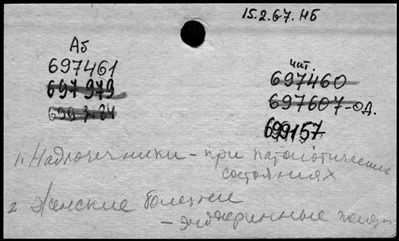 15.2.67. НБ
Аб
697461
697979
чит.
697460
697607-од.
699157
1. Надпочечники - при патологических
состояниях
2. Женские болезни
- эндокринные